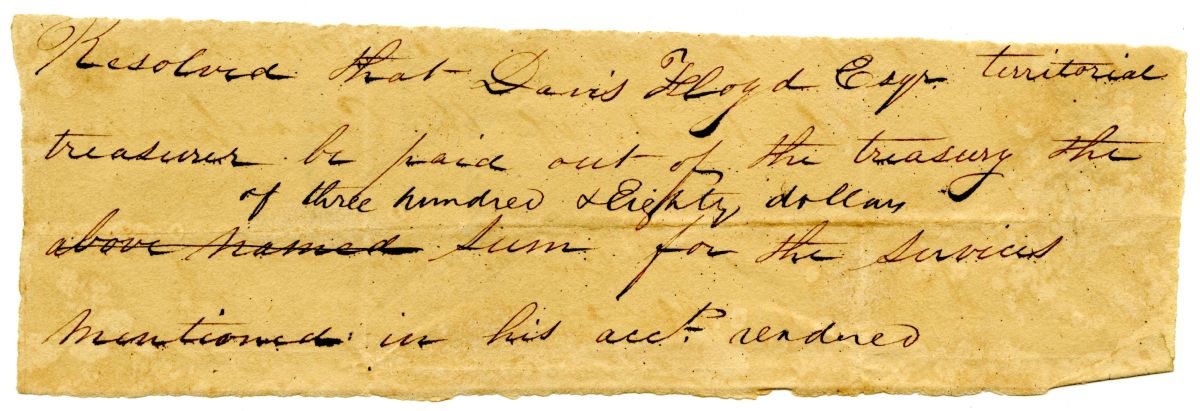 Resolved that Davis Floyd Esqr. territorial
treasurer be paid out of the treasury the
of three hundred & Eighty dollars
above named sum for the services
mentioned in his acct. rendered